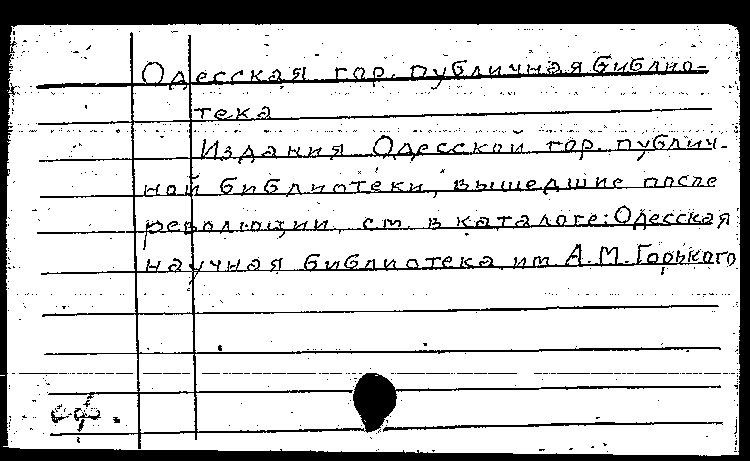 Одесская гор. публичная библио-
тека
Издания Одесской гор. публич-
ной библиотеки, вышедшие после
революции, см. в каталоге: Одесская
научная библиотека им А.М. Горького
сф.